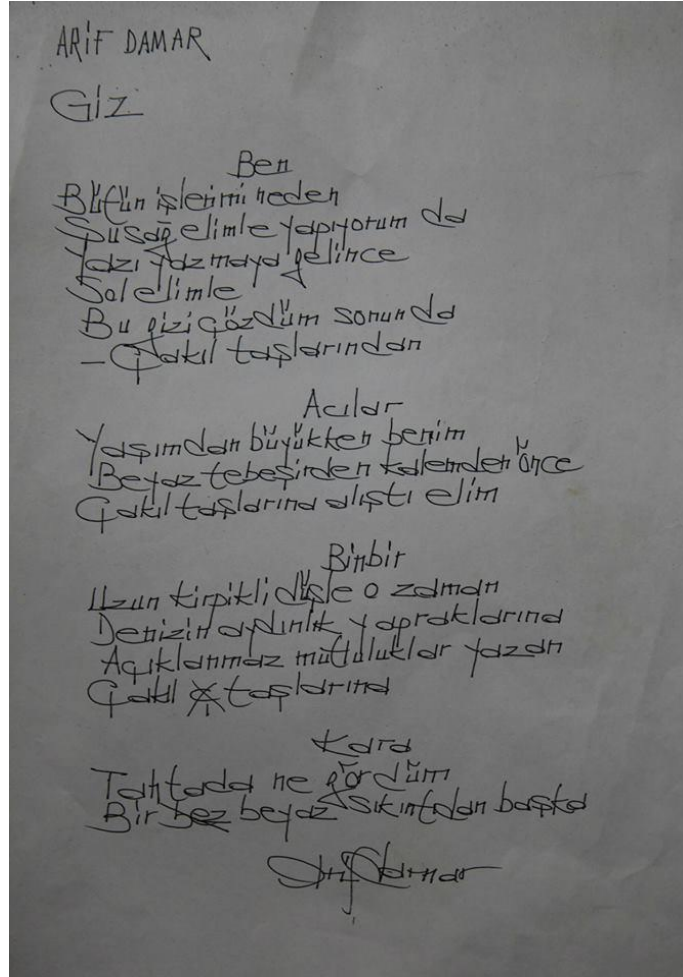 ARİF DAMAR
GİZ
Ben
Bütün işlerimi neden
Şu sağ elimle yapıyorum da
Yazı yazmaya gelince
Sol elimle
Bu gizi çözdüm sonunda
– Çakıl taşlarından
Acılar
Yaşımdan büyükken benim
Beyaz tebeşirden kalemden önce
Çakıl taşlarına alıştı elim
Binbir
Uzun kirpikli düşle o zaman
Denizin aydınlık yapraklarına
Açıklanmaz mutluluklar yazan
Çakıl taşlarına
Kara
Tahtada ne gördüm
Bir bez beyaz sıkıntıdan başka
Arif Damar